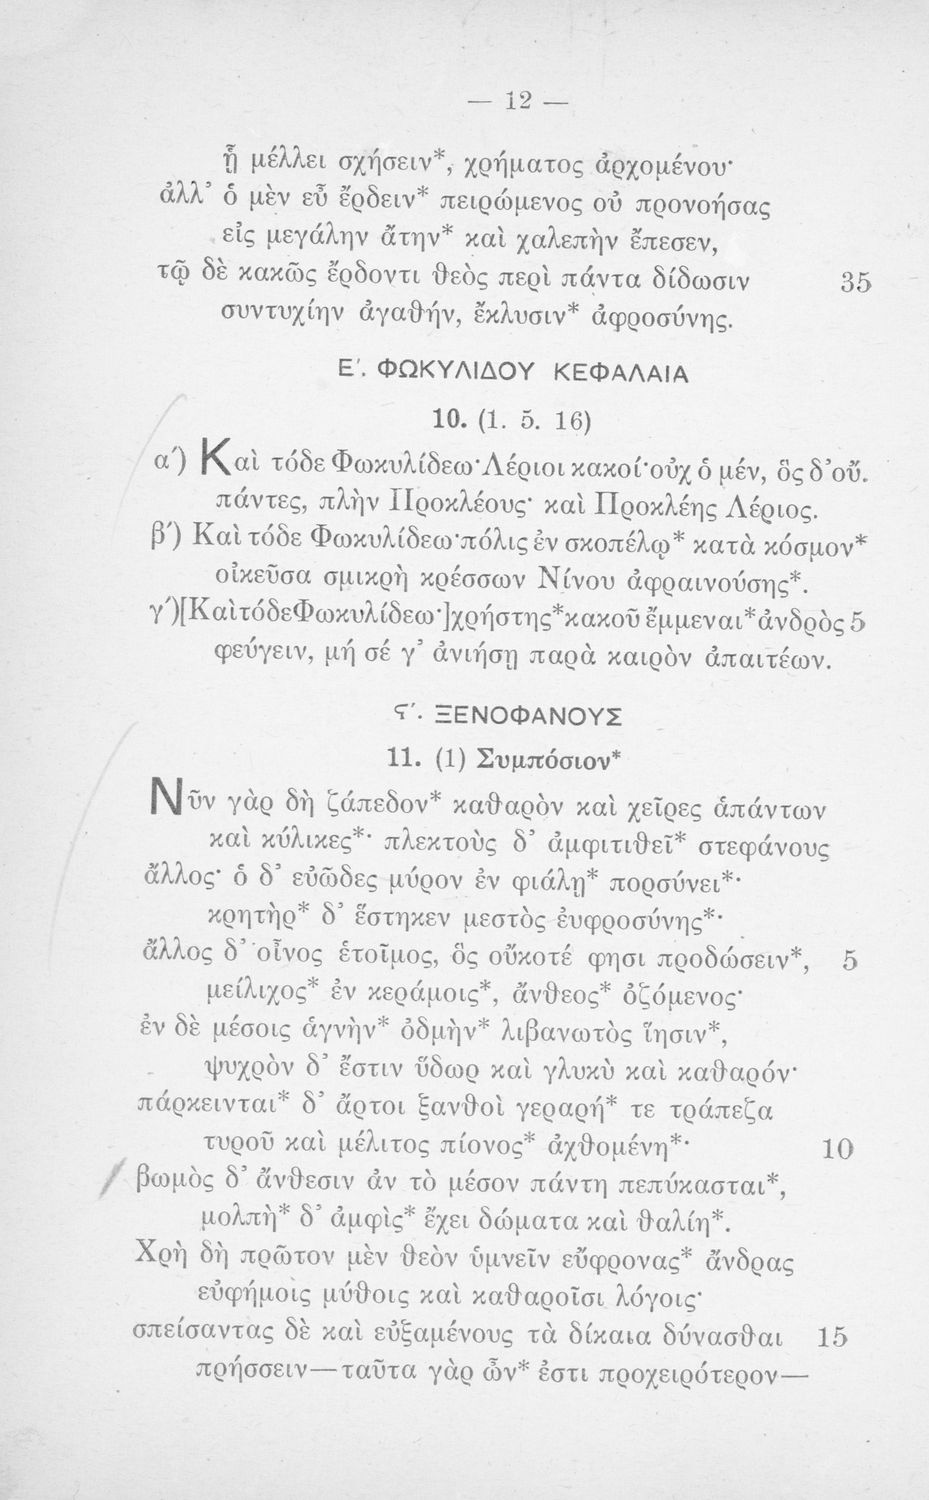 — 12 —
ᾗ μέλλει σχήσειν*, χρήματος ἀρχομένου·
ἀλλ' ὁ μὲν εὖ ἔρδειν* πειρώμενος οὐ προνοήσας
εἰς μεγάλην ἄτην* καὶ χαλεπὴν ἔπεσεν,
τῷ δὲ κακῶς ἔρδοντι θεὸς περὶ πάντα δίδωσιν 35
συντυχίην ἀγαθήν, ἔκλυσιν* ἀφροσύνης.
Ε΄. ΦΩΚΥΛΙΔΟΥ ΚΕΦΑΛΑΙΑ
10. (1. 5. 16)
α΄) Καὶ τόδε Φωκυλίδεω· Λέριοι κακοί· οὐχ ὁ μέν, ὃς δ' οὔ.
πάντες, πλὴν Προκλέους· καὶ Προκλέης Λέριος.
β΄) Καὶ τόδε Φωκυλίδεω· πόλις ἐν σκοπέλῳ* κατὰ κόσμον*
οἰκεῦσα σμικρὴ κρέσσων Νίνου ἀφραινούσης*.
γ΄) [Καὶ τόδε Φωκυλίδεω·] χρήστης* κακοῦ ἔμμεναι* ἀνδρὸς 5
φεύγειν, μή σέ γ' ἀνιήσῃ παρὰ καιρὸν ἀπαιτέων.
Ϛ΄. ΞΕΝΟΦΑΝΟΥΣ
11. (1) Συμπόσιον*
Νῦν γὰρ δὴ ζάπεδον* καθαρὸν καὶ χεῖρες ἁπάντων
καὶ κύλικες*· πλεκτοὺς δ' ἀμφιτιθεῖ* στεφάνους
ἄλλος· ὁ δ' εὐῶδες μύρον ἐν φιάλῃ* πορσύνει*·
κρητὴρ* δ' ἕστηκεν μεστὸς ἐυφροσύνης*·
ἄλλος δ' οἶνος ἑτοῖμος, ὃς οὔκοτέ φησι προδώσειν*, 5
μείλιχος* ἐν κεράμοις*, ἄνθεος* ὀζόμενος·
ἐν δὲ μέσοις ἁγνὴν* ὀδμὴν* λιβανωτὸς ἵησιν*,
ψυχρὸν δ' ἔστιν ὕδωρ καὶ γλυκὺ καὶ καθαρόν·
πάρκεινται* δ' ἄρτοι ξανθοὶ γεραρή* τε τράπεζα
τυροῦ καὶ μέλιτος πίονος* ἀχθομένη*· 10
βωμὸς δ' ἄνθεσιν ἀν τὸ μέσον πάντη πεπύκασται*,
μολπὴ* δ' ἀμφὶς* ἔχει δώματα καὶ θαλίη*.
Χρὴ δὴ πρῶτον μὲν θεὸν ὑμνεῖν εὔφρονας* ἄνδρας
εὐφήμοις μύθοις καὶ καθαροῖσι λόγοις·
σπείσαντας δὲ καὶ εὐξαμένους τὰ δίκαια δύνασθαι 15
πρήσσειν—ταῦτα γὰρ ὦν* ἐστι προχειρότερον—